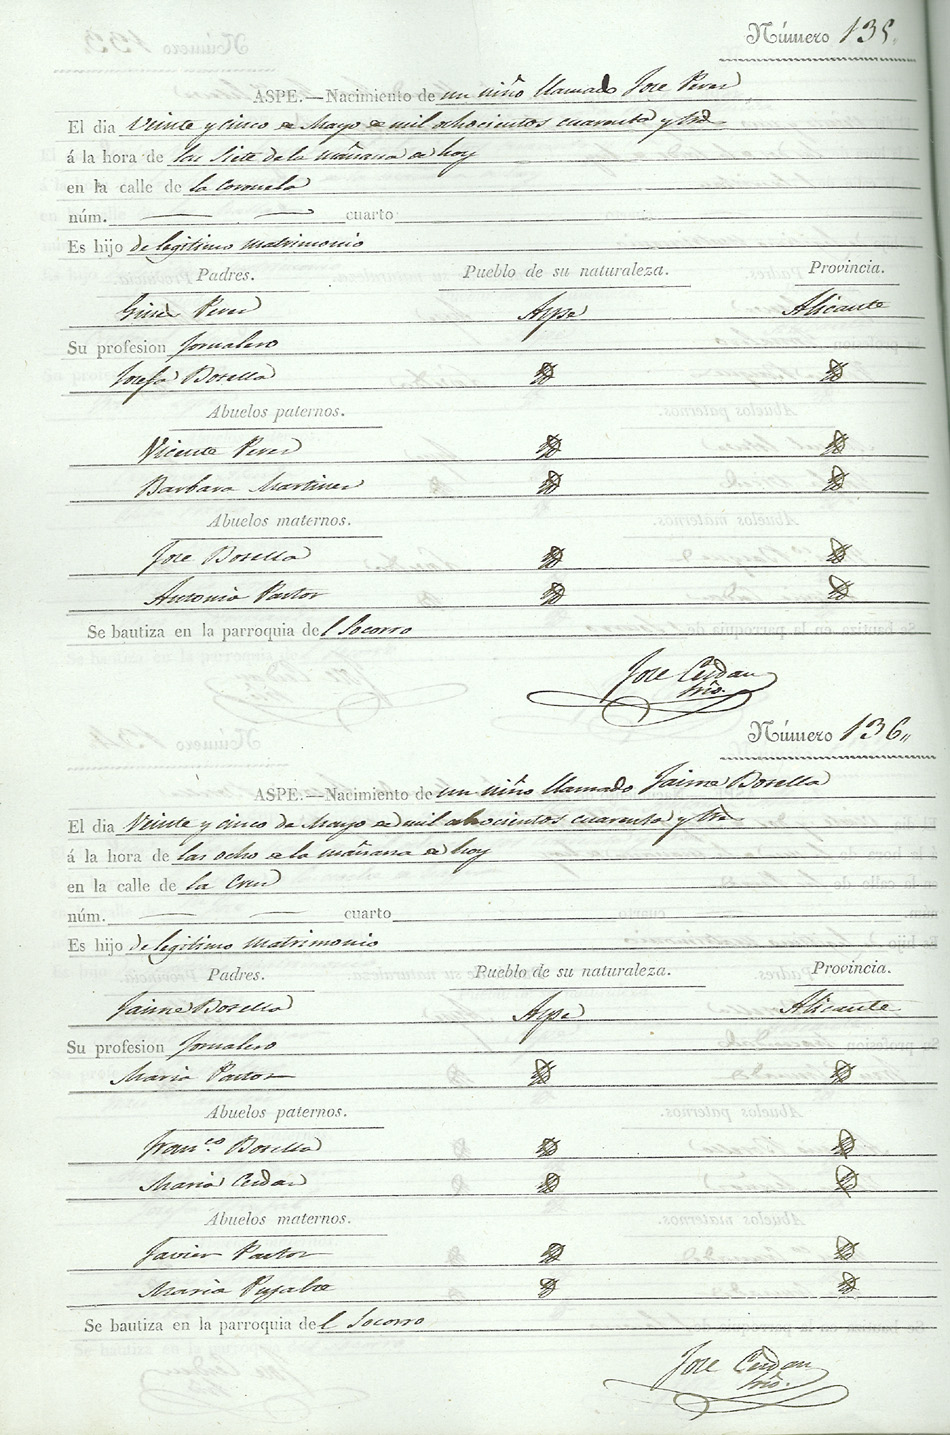 Número 135.
ASPE.—Nacimiento de un niño llamado Jose Perez
El dia Veinte y cinco de Mayo de mil ochocientos cuarenta y tres
á la hora de las siete de la mañana de hoy
en la calle de la Coruela
núm. — — cuarto
Es hijo de legitimo matrimonio
Padres. Pueblo de su naturaleza. Provincia.
Gines Perez Aspe Alicante
Su profesion Jornalero
Josefa Botella
Abuelos paternos.
Vicente Perez
Barbara Martinez
Abuelos maternos.
Jose Botella
Antonia Pastor
Se bautiza en la parroquia del Socorro
Jose Cerdan
srio.
Número 136,,
ASPE.—Nacimiento de un niño llamado Jaime Botella
El dia Veinte y cinco de Mayo de mil ochocientos cuarenta y tres
á la hora de las ocho de la mañana de hoy
en la calle de la Cruz
núm. — — cuarto
Es hijo de legitimo matrimonio
Padres. Pueblo de su naturaleza. Provincia.
Jaime Botella Aspe Alicante
Su profesion Jornalero
Maria Pastor
Abuelos paternos.
Franco. Botella
Maria Cerdan
Abuelos maternos.
Javier Pastor
Maria
Se bautiza en la parroquia del Socorro
Jose Cerdan
srio.